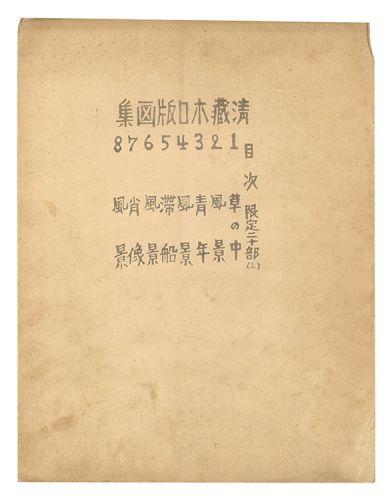 清藏木口版画集
目次
限定二十部(2)
1 草の中
2 風景
3 青年
4 風景
5 滞船
6 風景
7 肖像
8 風景